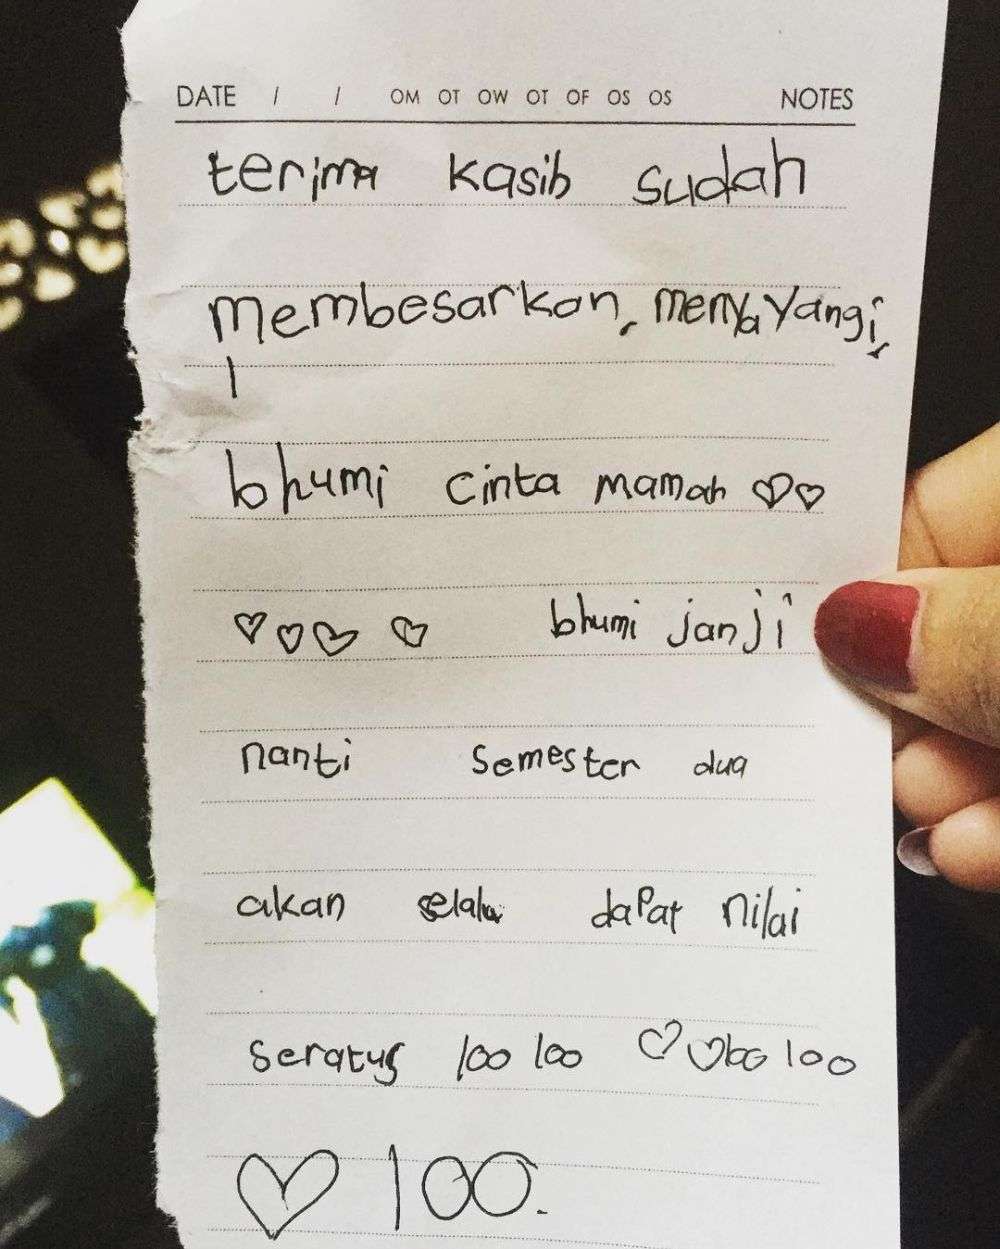 DATE / / OM OT OW OT OF OS OS NOTES
terima kasih sudah
membesarkan, menyayangi,
bhumi cinta mamah ♡♡
♡♡♡ ♡ bhumi janji
nanti semester dua
akan selalu dapat nilai
seratus 100 100 ♡♡100 100
♡ 100.